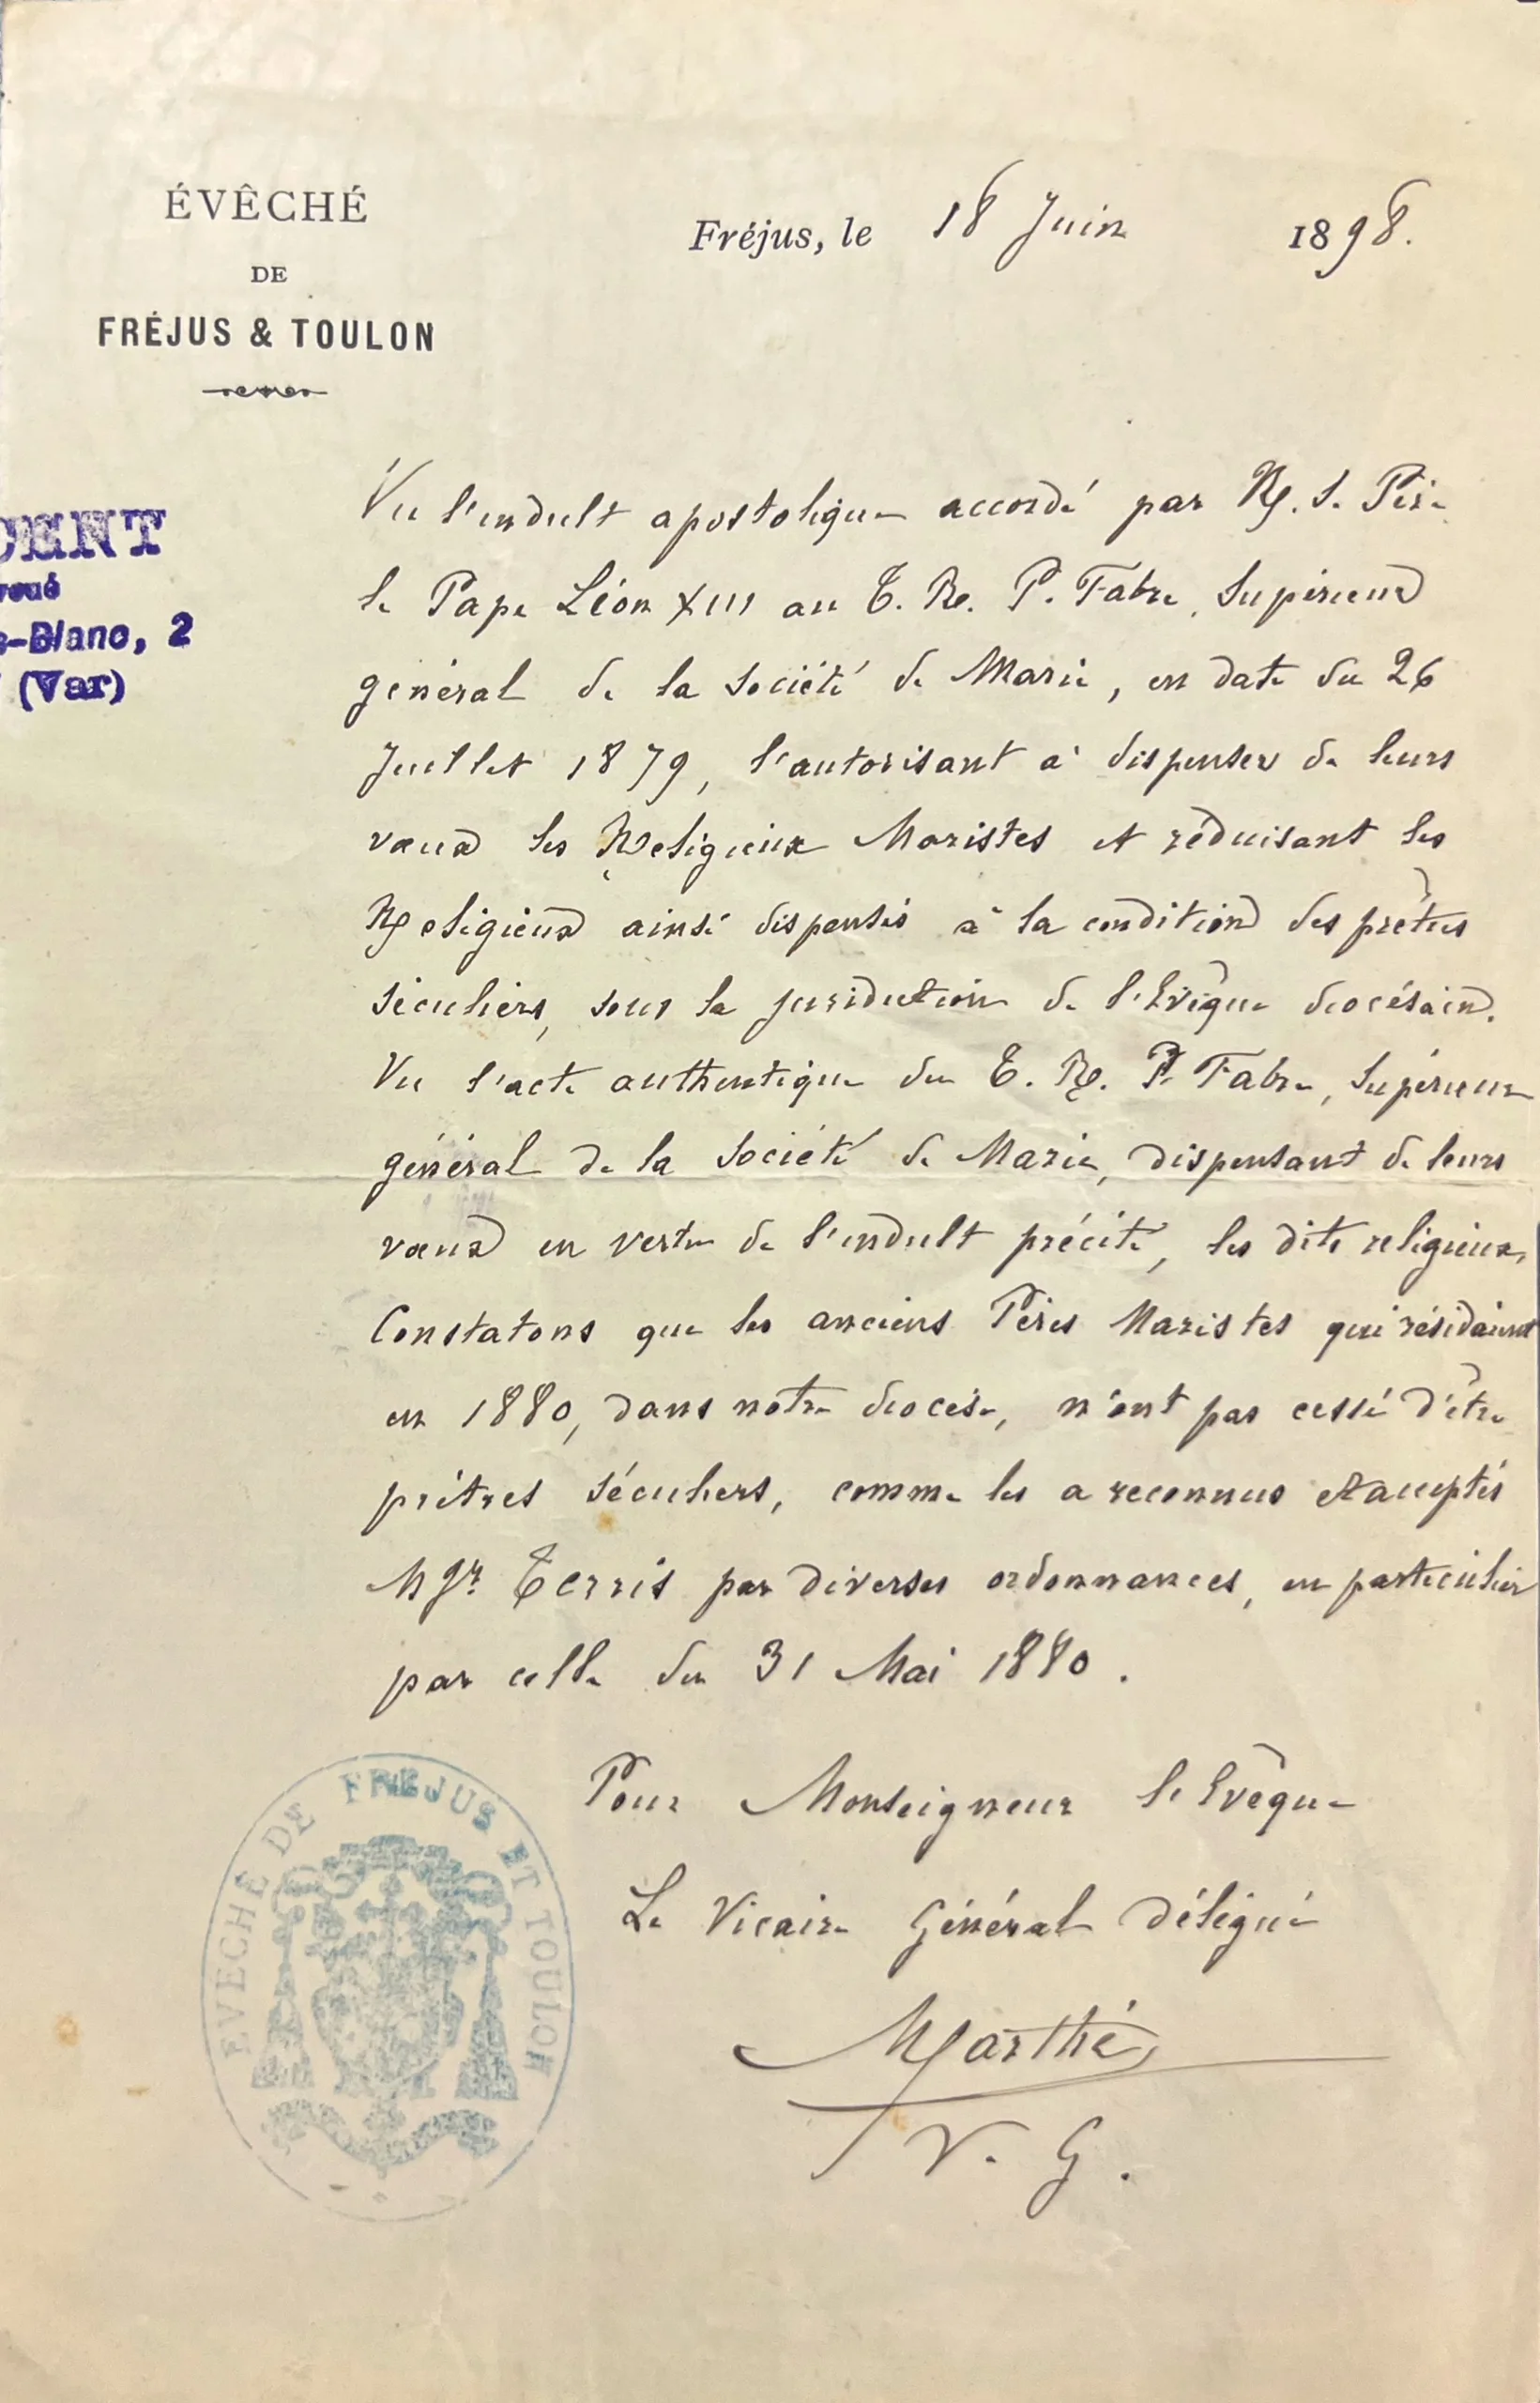 ÉVÊCHÉ
DE
FRÉJUS & TOULON
Fréjus, le 18 Juin 1898.
CENT
voué
s-Blanc, 2
(Var)
Vu l'indult apostolique accordé par N. S. Père
le Pape Léon XIII au T. R. P. Fabre, Supérieur
général de la Société de Marie, en date du 26
Juillet 1879, l'autorisant à dispenser de leurs
vœux les Religieux Maristes et réduisant les
Religieux ainsi dispensés à la condition des prêtres
séculiers, sous la juridiction de l'Evêque diocésain.
Vu l'acte authentique du T. R. P. Fabre, Supérieur
général de la Société de Marie, dispensant de leurs
vœux en vertu de l'indult précité, les dits religieux,
Constatons que les anciens Pères Maristes qui résidaient
en 1880, dans notre diocèse, n'ont pas cessé d'être
prêtres séculiers, comme les a reconnus et acceptés
Mgr Terris par diverses ordonnances, en particulier
par celle du 31 Mai 1880.
Pour Monseigneur l'Evêque
Le Vicaire Général délégué
Marthe
V. G.
EVECHÉ DE FREJUS ET TOULON